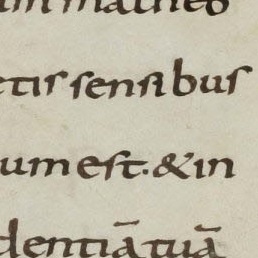 in matheo
ctis sensibus
um est. & in
dentiā tuā